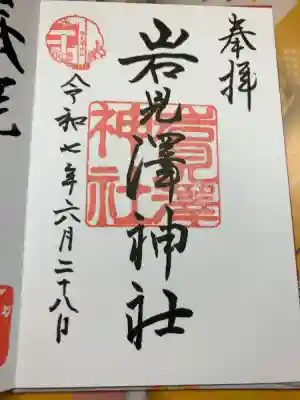 奉拝
岩見澤神社
岩見澤神社
令和七年六月二十八日